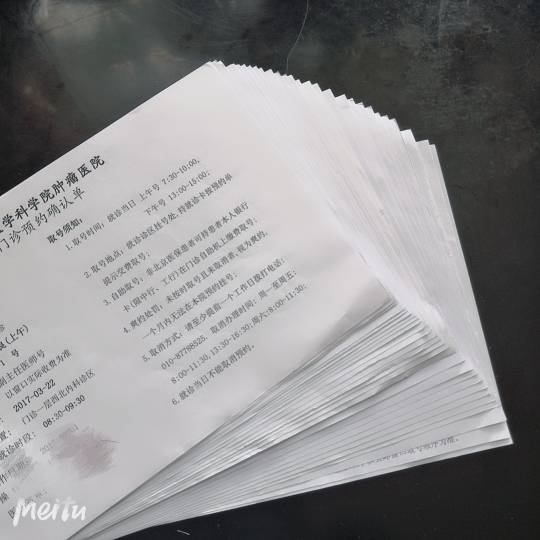 学科学院肿瘤医院
门诊预约确认单
取号须知:
1.取号时间:就诊当日 上午号 7:30-10:00,
下午号 13:00-15:00;
2.取号地点:就诊诊区挂号处,持就诊卡按预约单
提示交费取号;
3.自助取号:非北京医保患者可持患者本人银行
卡(限中行、工行)在门诊自助机上缴费取号;
4.爽约处罚:未按时取号且未取消者,视为爽约;
一个月内无法在本院预约挂号;
5.取消方式:请至少提前一个工作日拨打电话:
010-87788525. 取消办理时间:周一至周五:
8:00-11:30,13:30-16:30;周六:8:00-11:30;
6.就诊当日不能取消预约。
诊
(上午)
副主任医师号
号
以窗口实际收费为准
2017-03-22
门诊一层西北内科诊区
就诊时段: 08:30-09:30
meitu